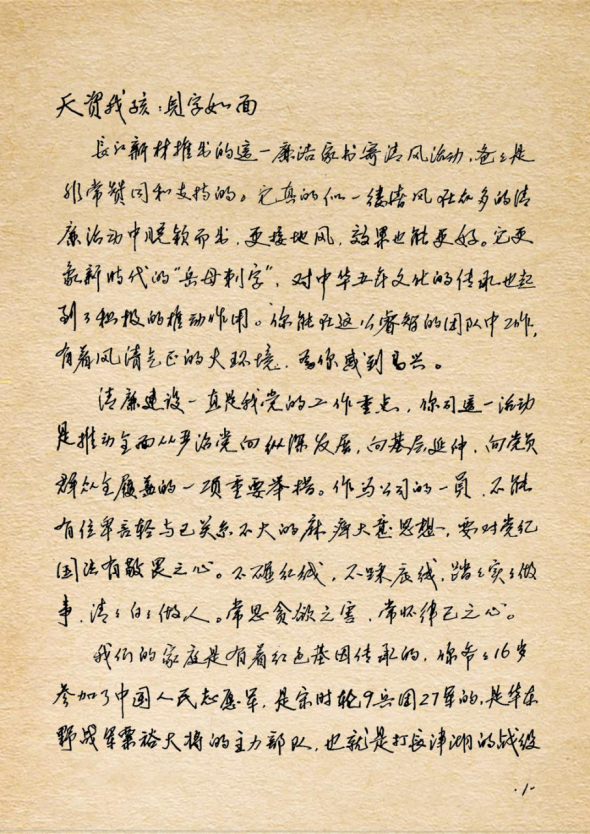 天资我孩:见字如面
長江新材推出的这一廉洁家书寄清风活动,爸〻是
非常赞同和支持的。它真的似一缕清风在众多的清
廉活动中脱颖而出,更接地风,效果也能更好。它更
象新时代的“岳母刺字”,对中华五千年文化的传承也起
到了积极的推动作用。你能在这么睿智的团队中工作,
有着风清气正的大环境,爲你感到高兴。
清廉建设一直是我党的工作重点,你司这一活动
是推动全面从严治党向纵深发展,向基层延伸,向党员
群众全履盖的一项重要举措。作为公司的一員,不能
有位卑言轻与已关系不大的麻痹大意思想,要对党纪
国法有敬畏之心。不碰红线,不踩底线,踏〻实〻做
事,清〻白〻做人。常思贪欲之害,常怀律己之心。
我们的家庭是有着红色基因传承的,你爷〻16岁
参加了中国人民志愿军,是宋时轮9兵团27军的,是华东
野战军粟裕大将的主力部队,也就是打長津湖的战役
·1·